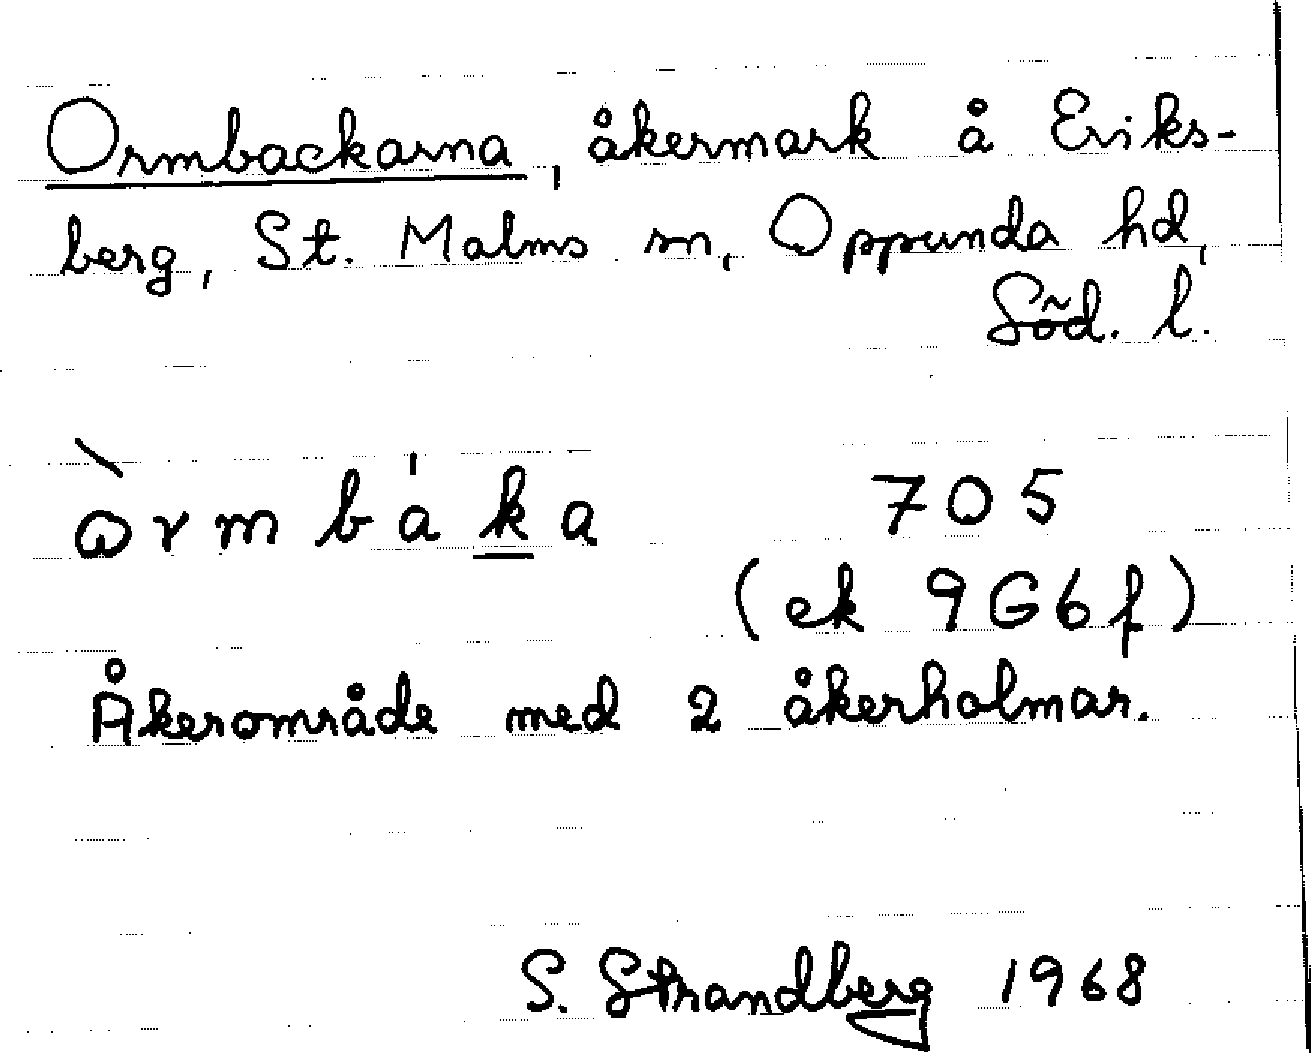 Ormbackarna, åkermark å Eriks-
berg, St. Malms sn, Oppunda hd,
Söd. l.
òrmbáka 705
(ek 9G6f)
Åkerområde med 2 åkerholmar.
S. Strandberg 1968